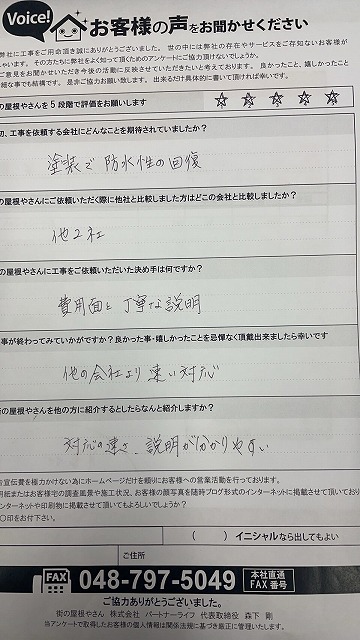 Voice!
お客様の声をお聞かせください
弊社に工事をご用命頂き誠にありがとうございました。世の中には弊社の存在やサービスをご存知ないお客様が
しゃいます。その方たちに弊社をよく知って頂くためのアンケートにご協力頂けないでしょうか。
ご意見をお聞かせいただき今後の活動に反映させていただきたいと考えております。良かったこと、嬉しかったこと
細な事でも結構です。是非ご協力お願い致します。出来るだけ具体的に書いて頂ければ幸いです。
の屋根やさんを5段階で評価をお願いします
☆ ☆ ☆ ☆ ☆
初、工事を依頼する会社にどんなことを期待されていましたか?
塗装で防水性の回復
の屋根やさんにご依頼いただく際に他社と比較しました方はどこの会社と比較しましたか?
他2社
の屋根やさんに工事をご依頼いただいた決め手は何ですか?
費用面と丁寧な説明
事が終わってみていかがですか?良かった事・嬉しかったことを忌憚なく頂戴出来ましたら幸いです
他の会社より速い対応
街の屋根やさんを他の方に紹介するとしたらなんと紹介しますか?
対応の速さ、説明が分かりやすい
告宣伝費を極力かけない為にホームページだけを頼りにお客様への営業活動を行っております。
用紙またはお客様宅の調査風景や施工状況、お客様の顔写真を随時ブログ形式のインターネットに掲載させて頂いており
ンターネットや印刷物に掲載させて頂いてもよろしいでしょうか?
○印をお付下さい。
( ) イニシャルなら出してもよい
ご住所
FAX 048-797-5049 本社直通 FAX番号
ご協力ありがとうございました。
街の屋根やさん 株式会社 パートナーライフ 代表取締役 森下 剛
当アンケートで取得したお客様の個人情報は関係法規に基づき厳正に管理いたします。